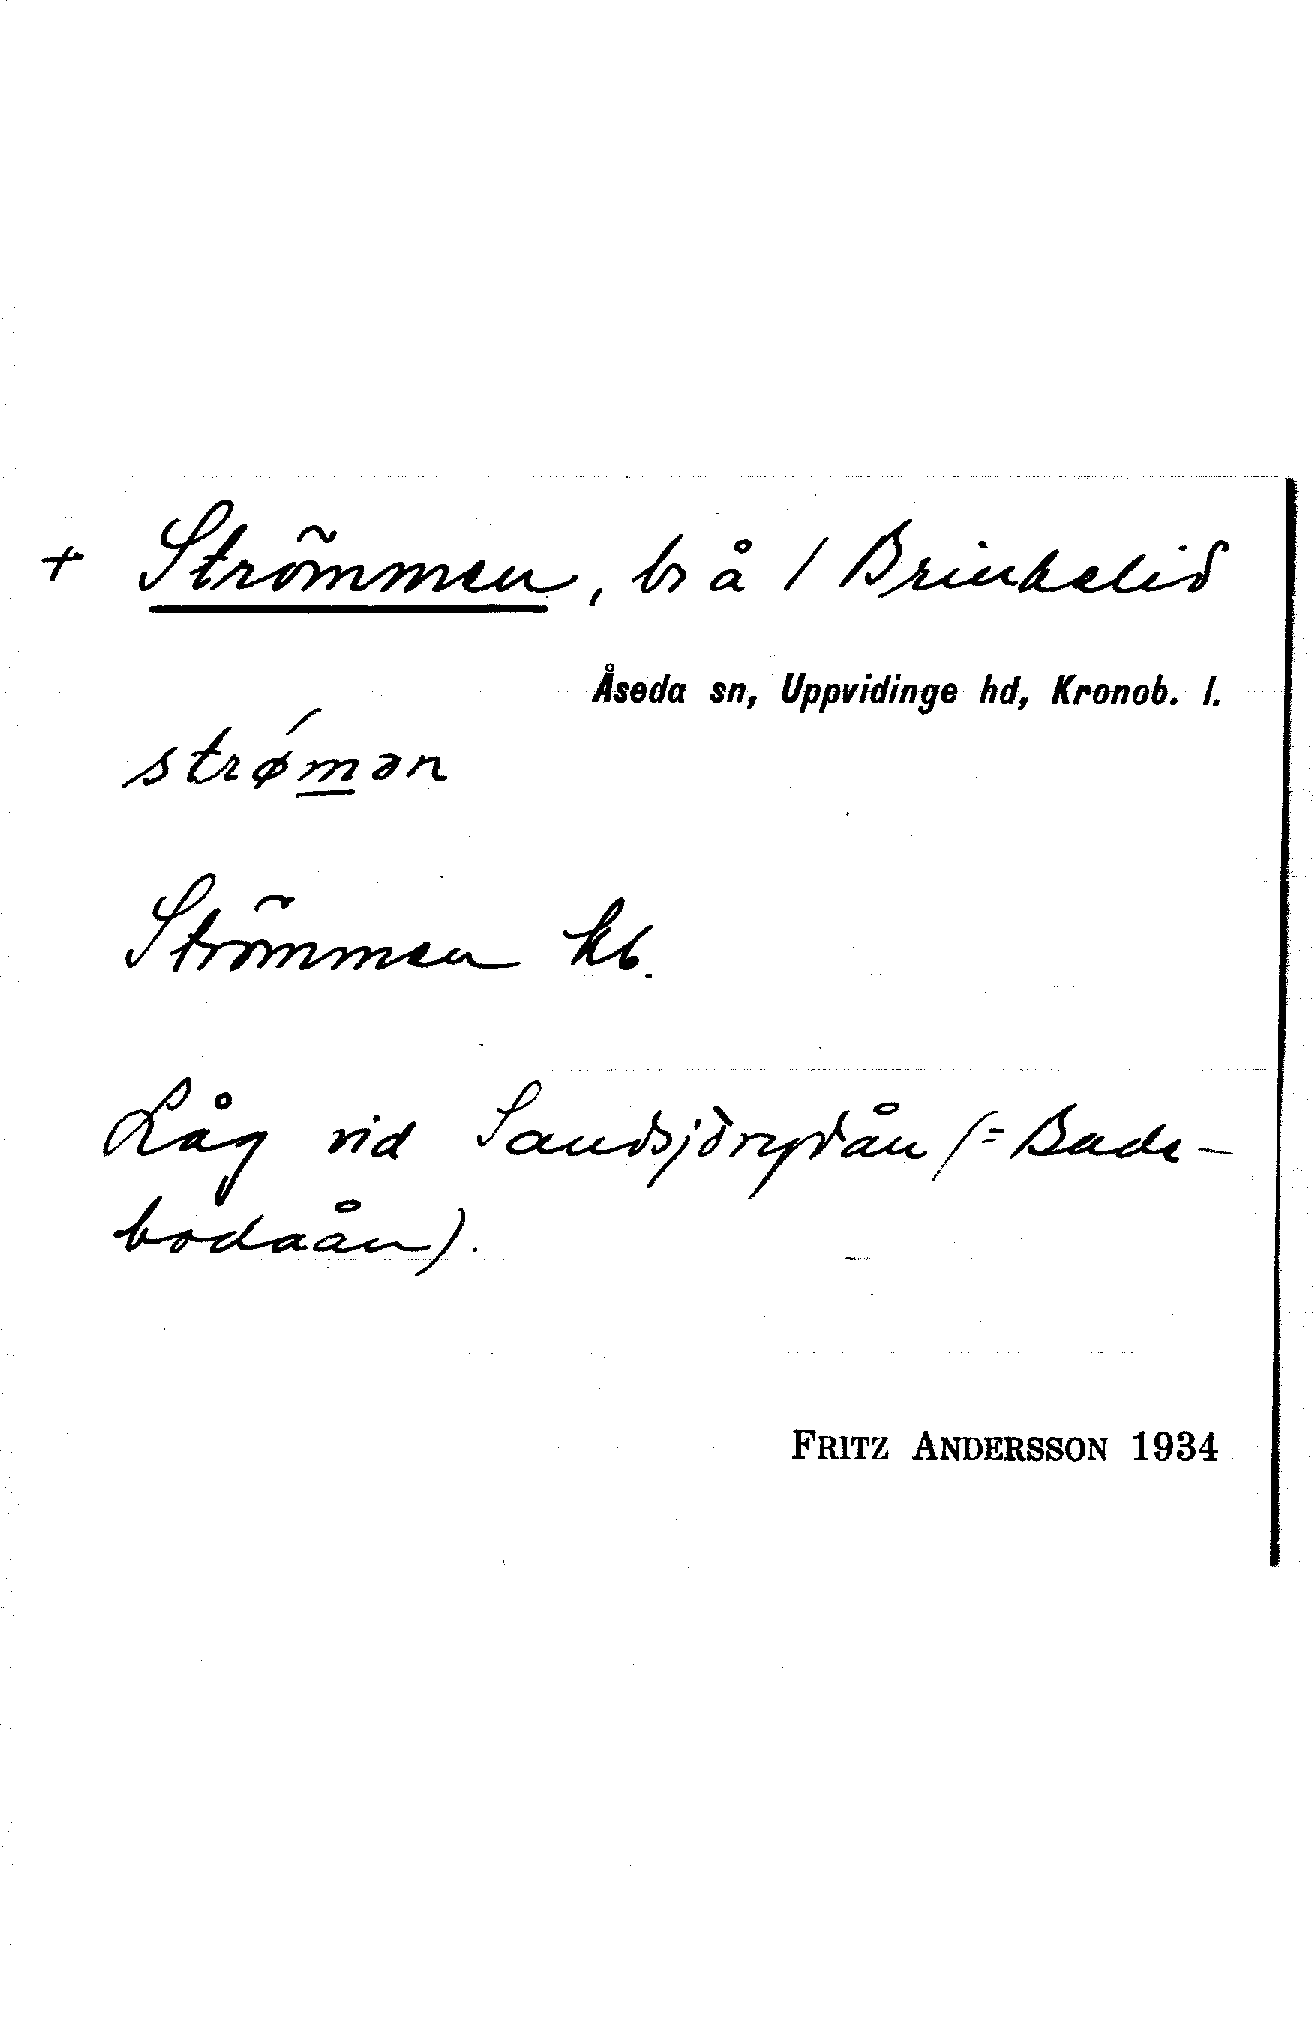 + Strömmen, br å / Brinkelid
Åseda sn, Uppvidinge hd, Kronob. l.
strǿm̲ən
Strömmen kb.
Låg vid Sandsjörydån (= Bade-
bodaån).
FRITZ ANDERSSON 1934